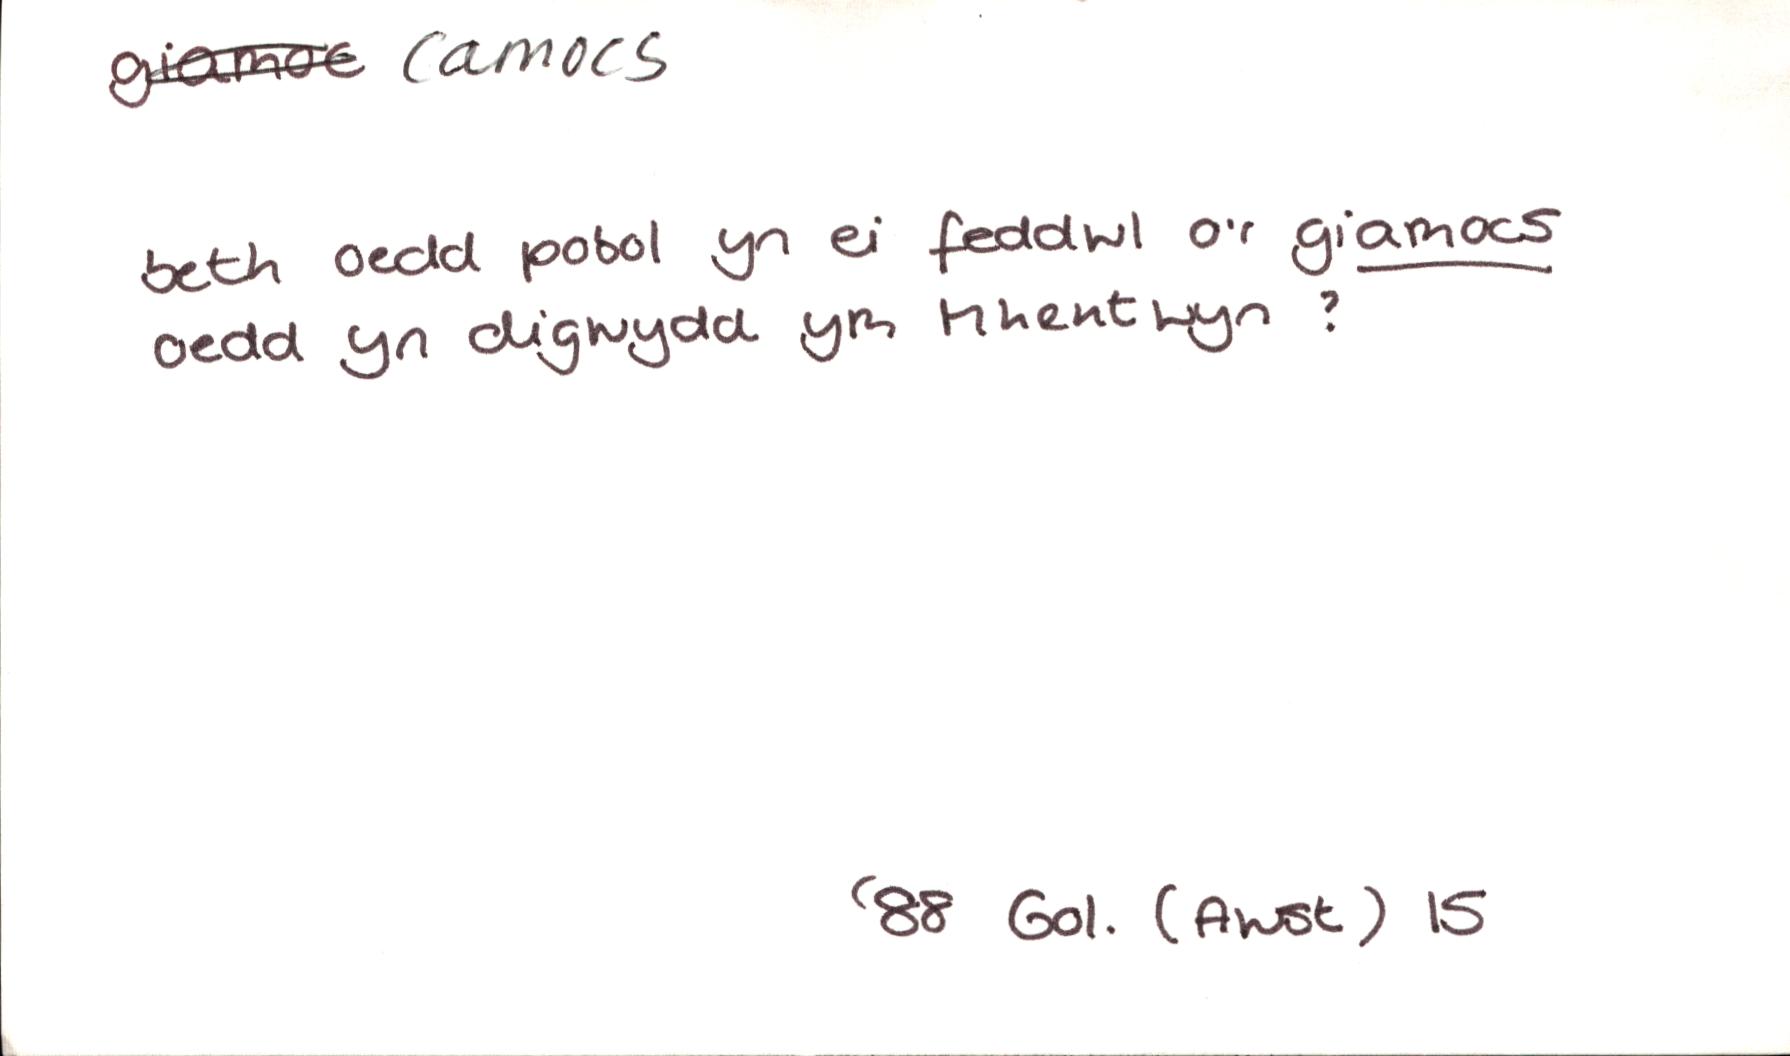 giamoc camocs
beth oedd pobol yn ei feddwl o'r giamocs
oedd yn digwydd ym Mhentwyn ?
'88 Gol. (Awst) 15